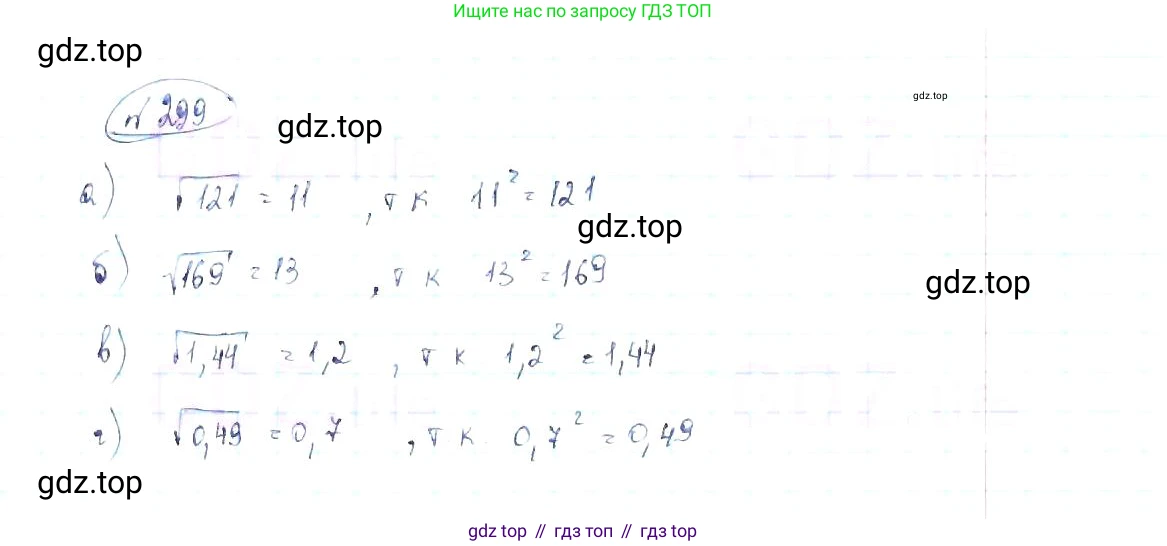 Ищите нас по запросу ГДЗ ТОП
gdz.top
gdz.top
№ 299
gdz.top
а) √121 = 11 , т к 11² = 121
gdz.top
б) √169 = 13 , т к 13² = 169
gdz.top
в) √1,44 = 1,2 , т к 1,2² = 1,44
г) √0,49 = 0,7 , т к 0,7² = 0,49
gdz.top
gdz top // гдз топ // гдз top